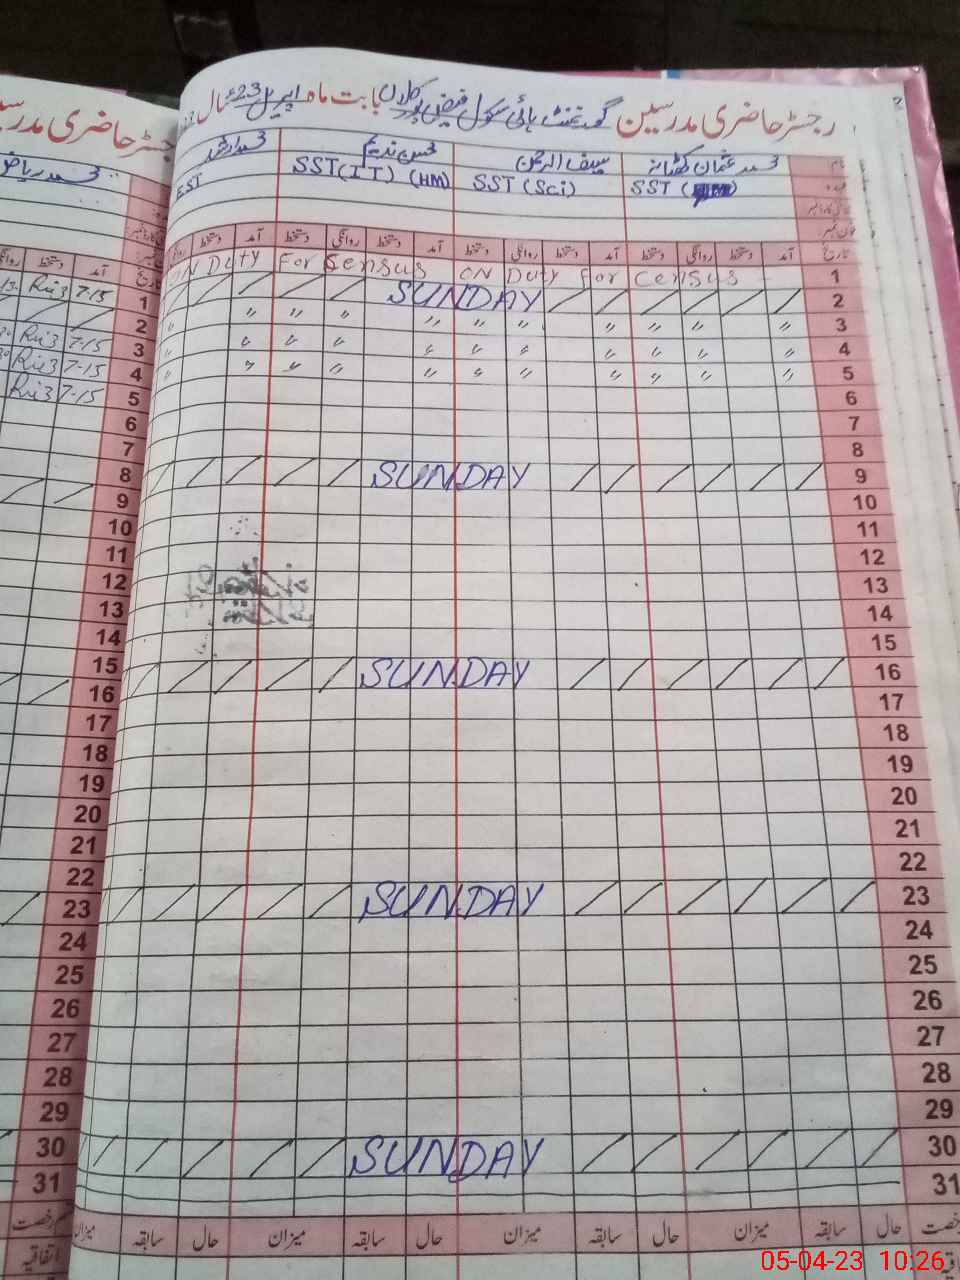 رجسٹر حاضری مدرسین گورنمنٹ ہائی سکول فیض پور کلاں بابت ماہ اپریل 23ء سال
جسٹر حاضری مدرسی
محمد عثمان سیف الرحمن محسن ندیم محمد ارشد
محمد ریاض
SST SST (Sci) SST(IT) (HM) EST
تاریخ آمد دستخط روانگی آمد دستخط روانگی دستخط آمد دستخط روانگی دستخط آمد دستخط روانگی
تاریخ آمد دستخط
1 ON Duty For Census ON Duty For Census
1 7-15 Riaz
2 SUNDAY
2
3 〃 〃 〃 〃 〃 〃 〃 〃 〃 〃 〃
3 7-15 Riaz
4 〃 〃 〃 〃 〃 〃 〃 〃 〃 〃 〃
4 7-15 Riaz
5 〃 〃 〃 〃 〃 〃 〃 〃 〃 〃 〃
5 7-15 Riaz
6
6
7
7
8
8
9 SUNDAY
9
10
10
11
11
12
12
13
13
14
14
15
15
16 SUNDAY
16
17
17
18
18
19
19
20
20
21
21
22
22
23 SUNDAY
23
24
24
25
25
26
26
27
27
28
28
29
29
30 SUNDAY
30
31
31
رخصت حال سابقہ میزان حال سابقہ میزان حال سابقہ میزان حال سابقہ میزان
رخصت
اتفاقیہ
05-04-23 10:26